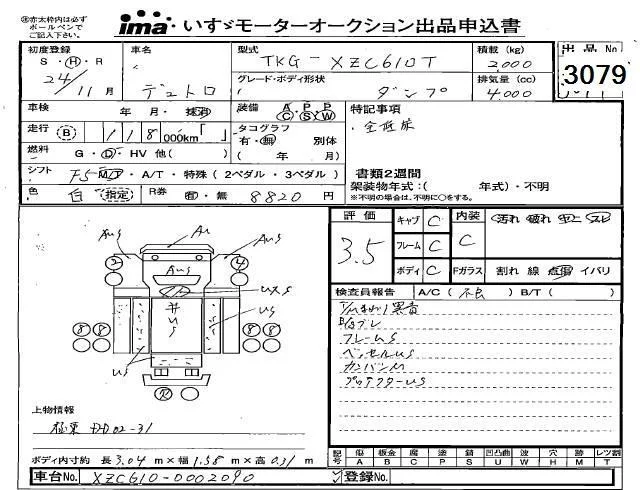 ※赤太枠内は必ず
ボールペンで
ご記入下さい。
ima いすゞモーターオークション出品申込書
初度登録 車名 型式 TKG-XZC610T 積載(kg) 2,000 出品No
S・H・R 24/11月 デュトロ グレード・ボディ形状 ダンプ 排気量(cc) 4,000 3079
車検 年 月・抹消 装備 A・P・P C S W 特記事項
走行 B 118 000km「 」 タコグラフ 有・無 別体 ・全低床
燃料 G・D・HV 他( ) ( 年 月) 書類2週間
シフト F5 M/T・A/T・特殊(2ペダル・3ペダル) 架装物年式:( 年式)・不明
色 白 指定 R券 有・無 8820円 ※不明の場合は、不明に○をする。
評価 3.5 キャブ C 内装 C 汚れ 破れ
フレーム C
ボディ C Fガラス 割れ 線 点傷 イバリ
検査員報告 A/C(不良) B/T( )
フレームS
ベッセルUS
カンバンM
プロテクターUS
AUS AU AUS
2 AUS 4
UXS
井
US US
8 8 8 8
US
R
上物情報
極東 DD02-31
ボディ内寸約 長 3.04 m×幅 1.58 m×高 0.31 m
記号 傷 板金 腐 塗 錆 凹凸曲 波 穴 跡 レツ割
A B C P S U W H M T
車台No. XZC610-0002090 登録No.